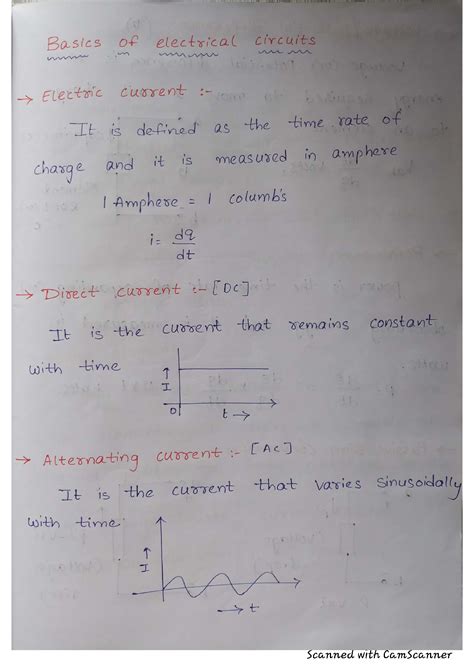 Basics of electrical circuits
→ Electric current :-
It is defined as the time rate of
charge and it is measured in amphere
1 Amphere = 1 columb's
i = dq/dt
→ Direct current :- [DC]
It is the current that remains constant
with time
↑
I
0
t →
→ Alternating current :- [AC]
It is the current that varies sinusoidally
with time
↑
I
→ t
Scanned with CamScanner